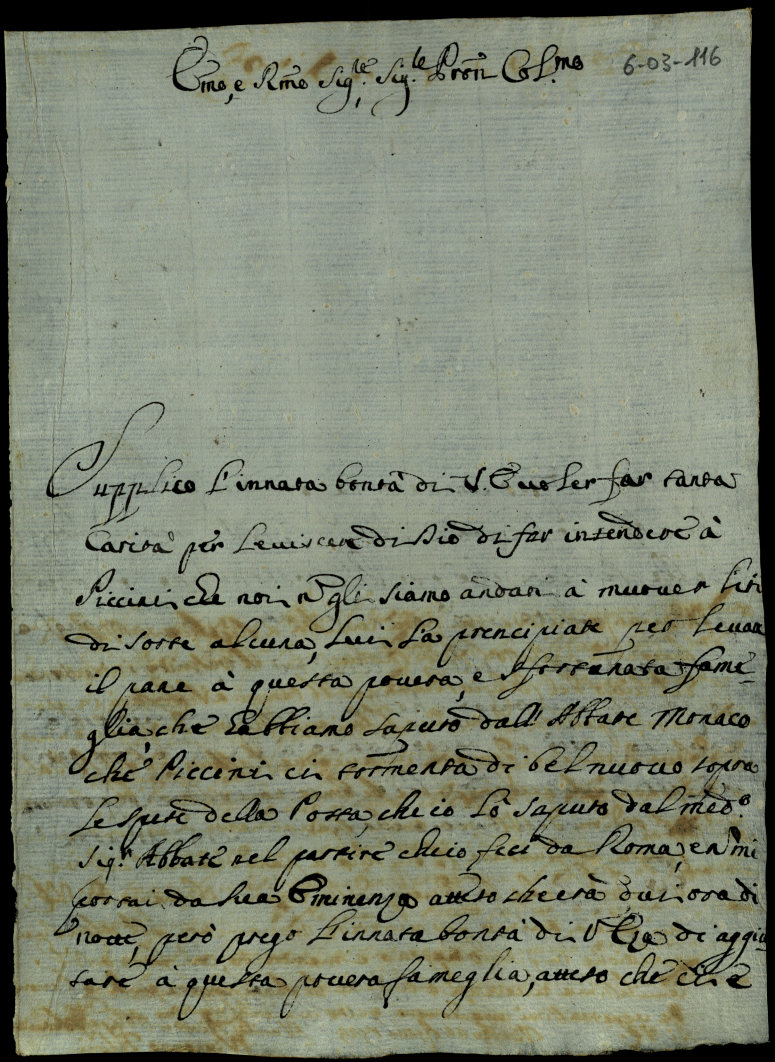 Emo, e Rmo Sig.re Sig.re Pron Col.mo
6-03-116
Supplico l'innata bontà di V. E. voler far tanta
Carità per le viscere di Dio di far intendere à
Piccini che noi nõ gli siamo andati à muover liti
di sorte alcuna, lui l'à prencipiate per levar
il pane à questa povera, e sfortunata fame-
glia, che habbiamo saputo dall'Abbate Monaco
che Piccini ci tormenta di bel nuovo sopra
le spese della Posta, che io l'ò saputo dal med.o
Sig.r Abbate nel partire che io feci da Roma, e nõ mi
portai da Sua Eminenza atteso che era qui ora di
notte, però prego l'innata bontà di V. Eza di aggiu
tare à questa povera fameglia, atteso che ci è